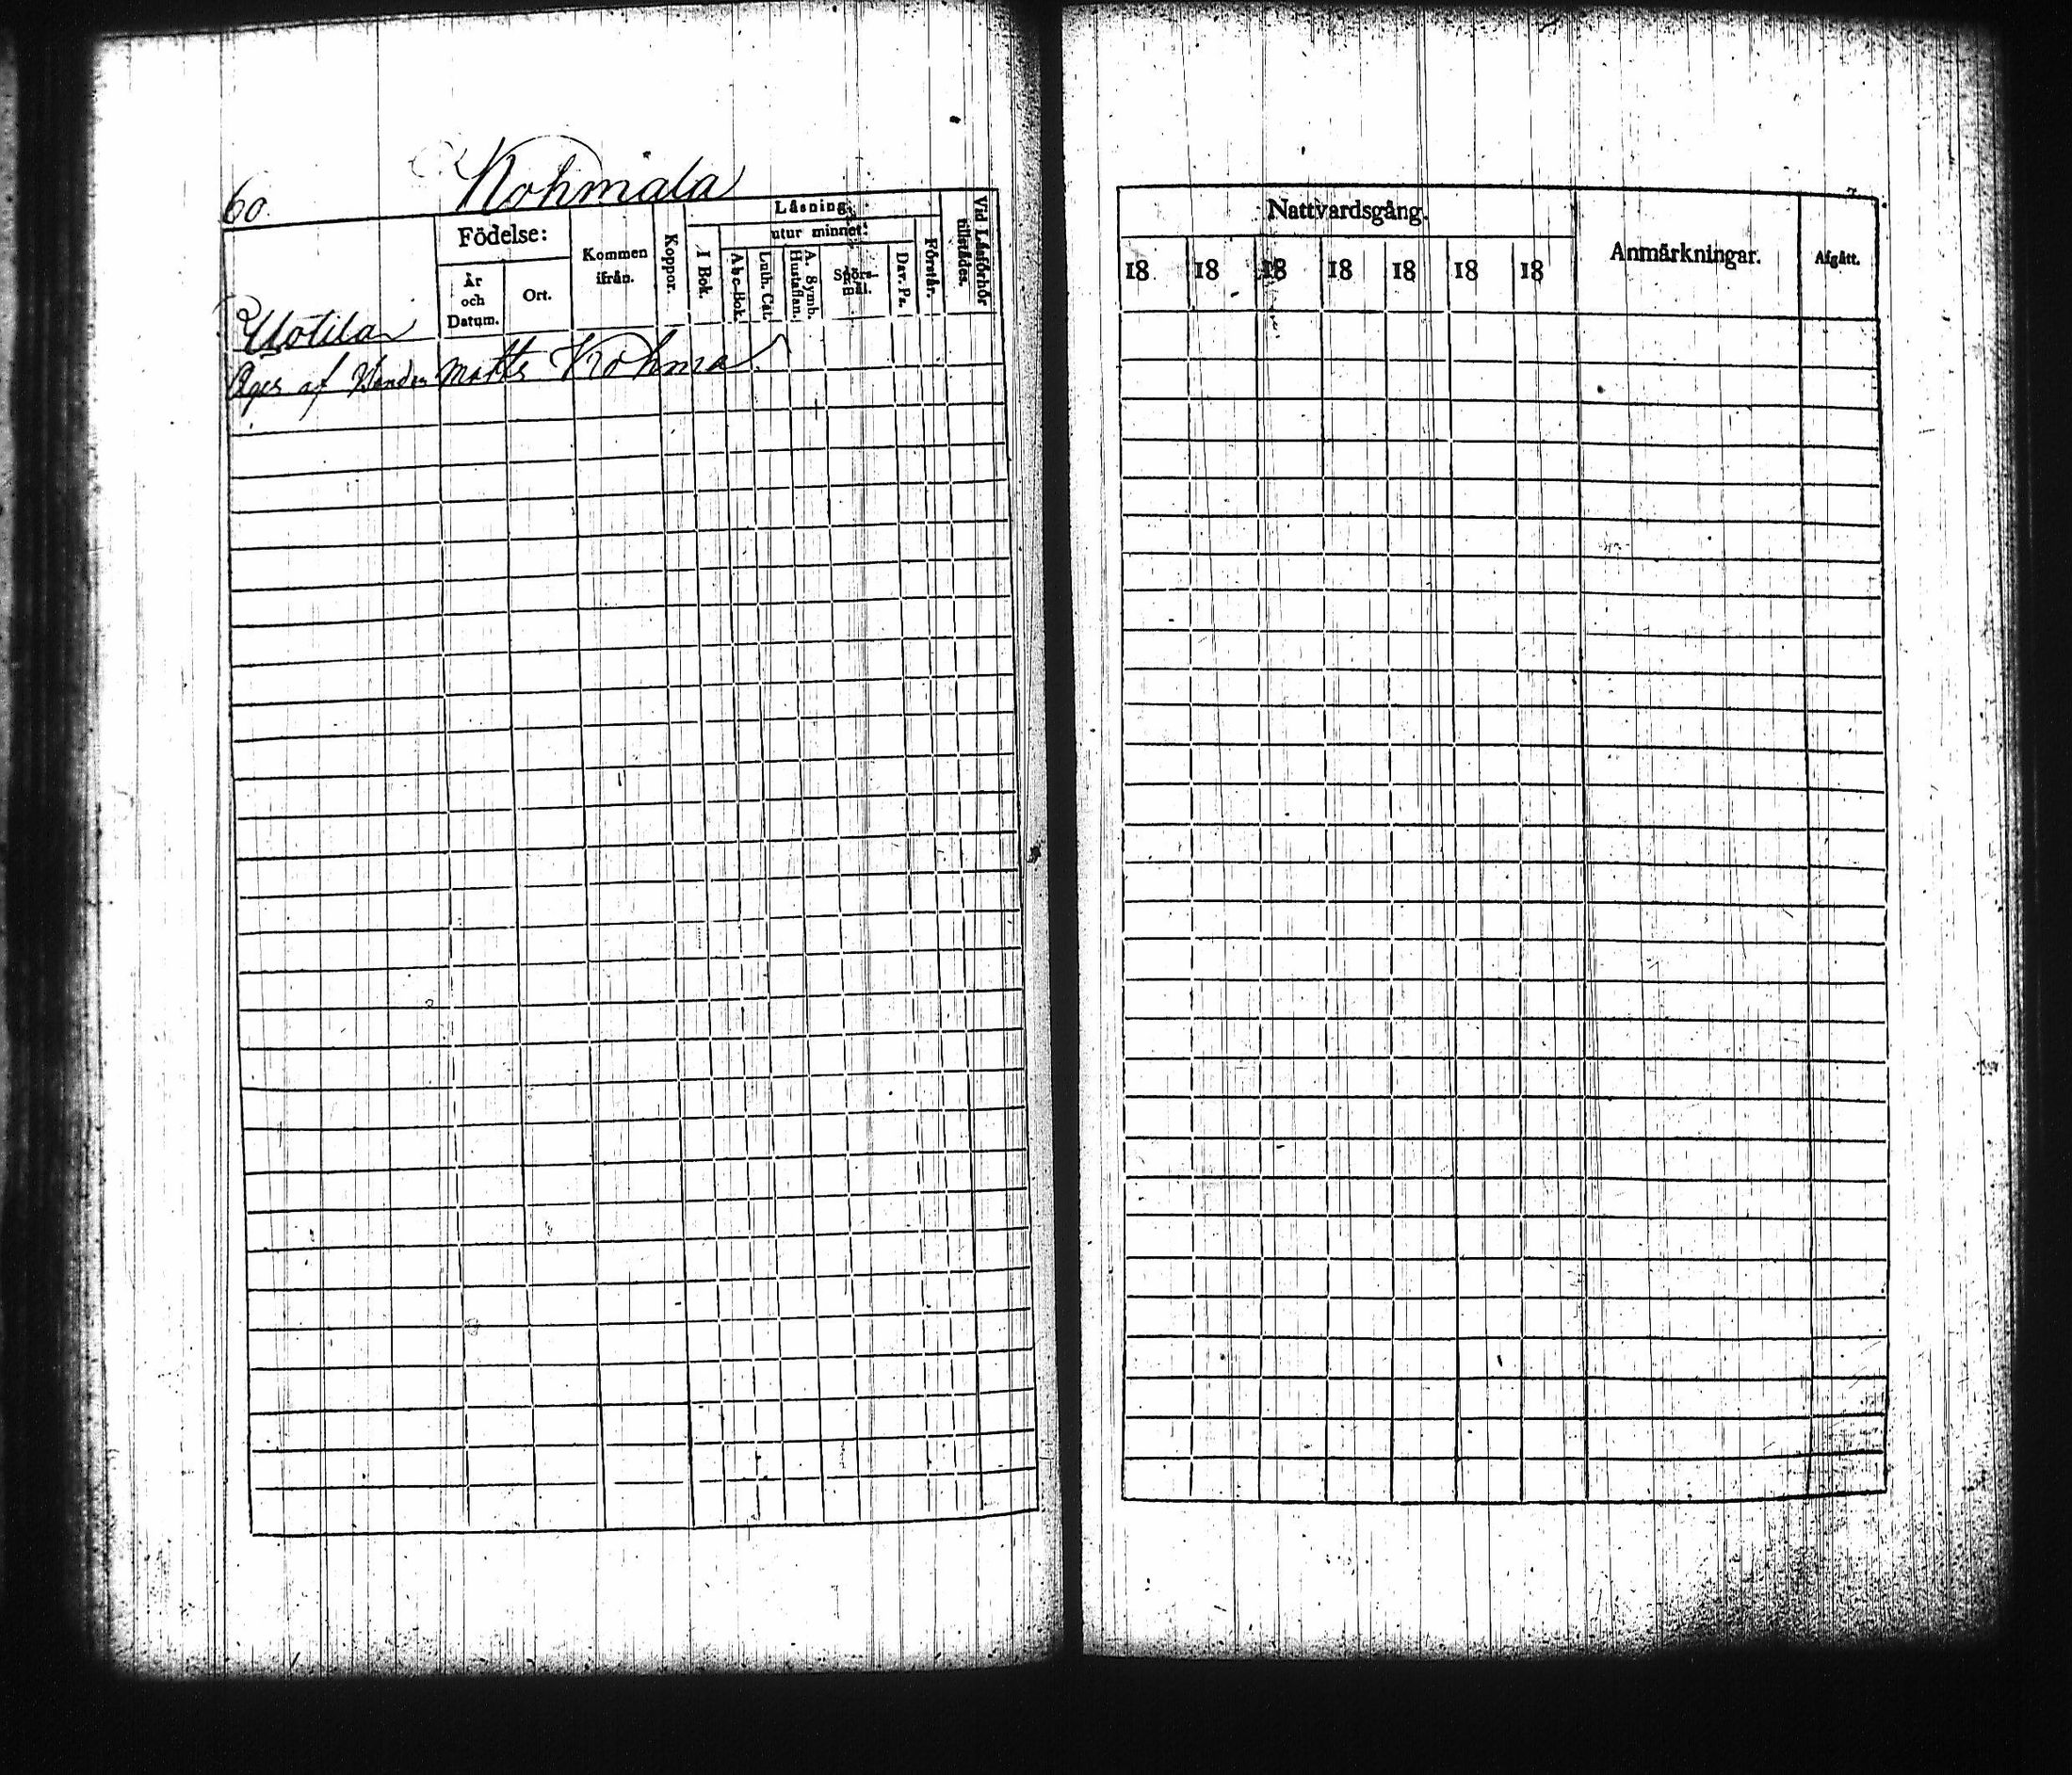 60.
Kohmala
Födelse:
År
och
Datum.
Ort.
Kommen
ifrån.
Koppor.
Läsning.
utur minnet:
I Bok.
Abc-Bok.
Luth. Cat.
A. Symb.
Hustaflan.
Spörs-
mål.
Dav. Ps.
Förstår.
Vid Läsförhör
tillstädes.
Uotila
Äges af Matts Kohma
Nattvardsgång.
18 18 18 18 18 18 18
Anmärkningar.
Afgått.